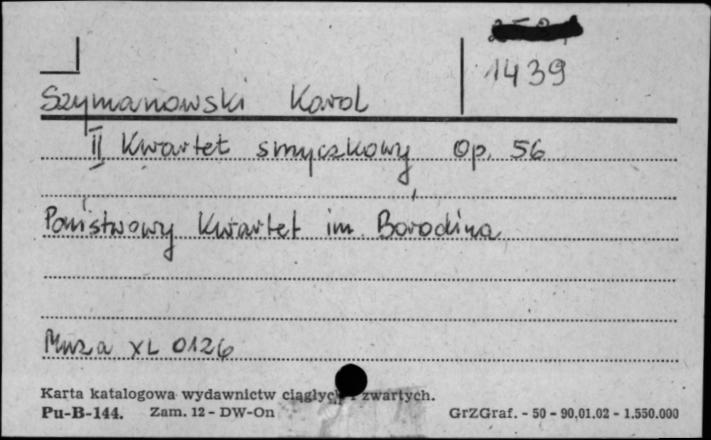 1439
Szymanowski Karol
II Kwartet smyczkowy Op. 56
Państwowy Kwartet im. Borodina
Muza XL 0126
Karta katalogowa wydawnictw ciągłych i zwartych.
Pu-B-144. Zam. 12 - DW-On GrZGraf. - 50 - 90,01.02 - 1.550.000